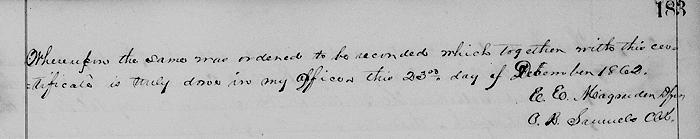 183
Whereupon the same was ordered to be recorded which together with this cer-
-tificate is truly done in my office this 23rd. day of December 1862.
E. E. Magruder D
O. B. Samuels Clk.